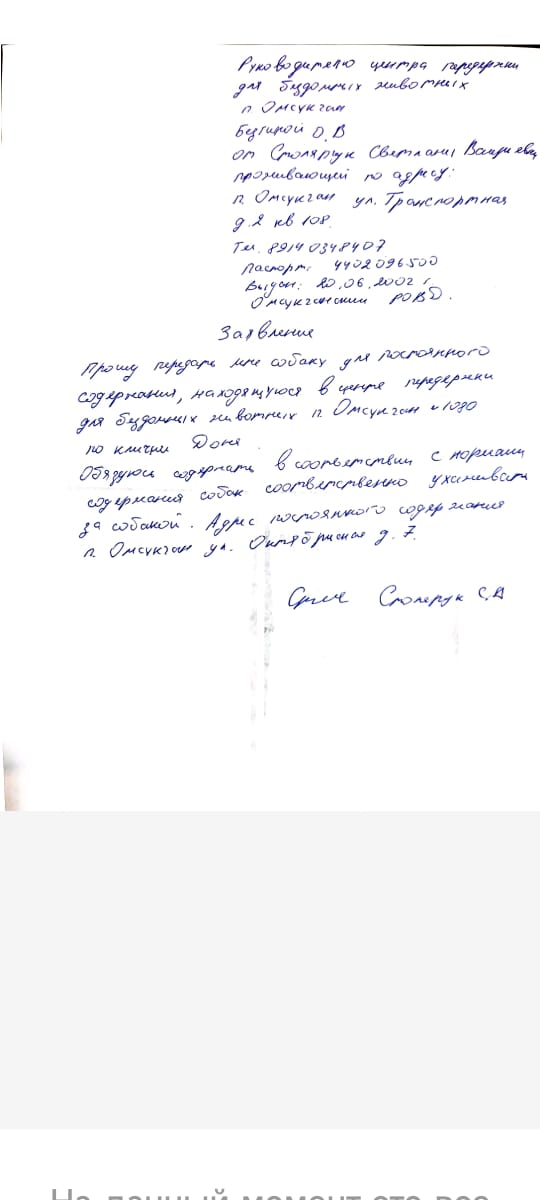 Руководителю центра передержки
для бездомных животных
п. Омсукчан
Безгиной О.В
от Столярчук Светланы
проживающей по адресу:
п. Омсукчан ул. Транспортная
д. 2 кв 108.
Тел. 89140348407
Паспорт: 4402096500
Выдан: 20.06.2002 г
Омсукчанским РОВД.
Заявление
Прошу передать мне собаку для постоянного
содержания, находящуюся в центре передержки
для бездомных животных п. Омсукчан 1080
по кличке Доня.
Обязуюсь содержать в соответствии с нормами
содержания собак соответственно ухаживать
за собакой. Адрес постоянного содержания
п. Омсукчан ул. Октябрьская д. 7.
С.В
На данный момент это все